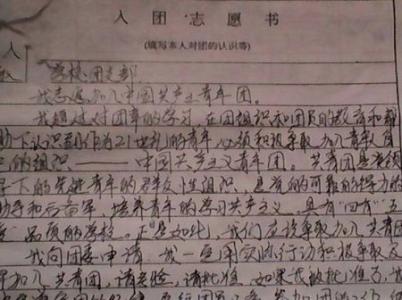 入团志愿书
(填写本人对团的认识等)
入
学校团支部
我志愿加入中国共产主义青年团。
我通过对团章的学习，在团组织和团员的教育和帮
助下认识到作为21世纪的青年，必须积极争取加入青年自
己的组织——中国共产主义青年团。共青团是党领
导下的先进青年的群众性组织，是党的可靠的得力的
助手和后备军，培养青年的学习共产主义，具有"四有"五
品质的学校。正是如此，我们应该争取加入共青团
我向团委申请，我一定用实际行动积极争取及
早加入共青团，请考验，请批准。如果我被批准了，我